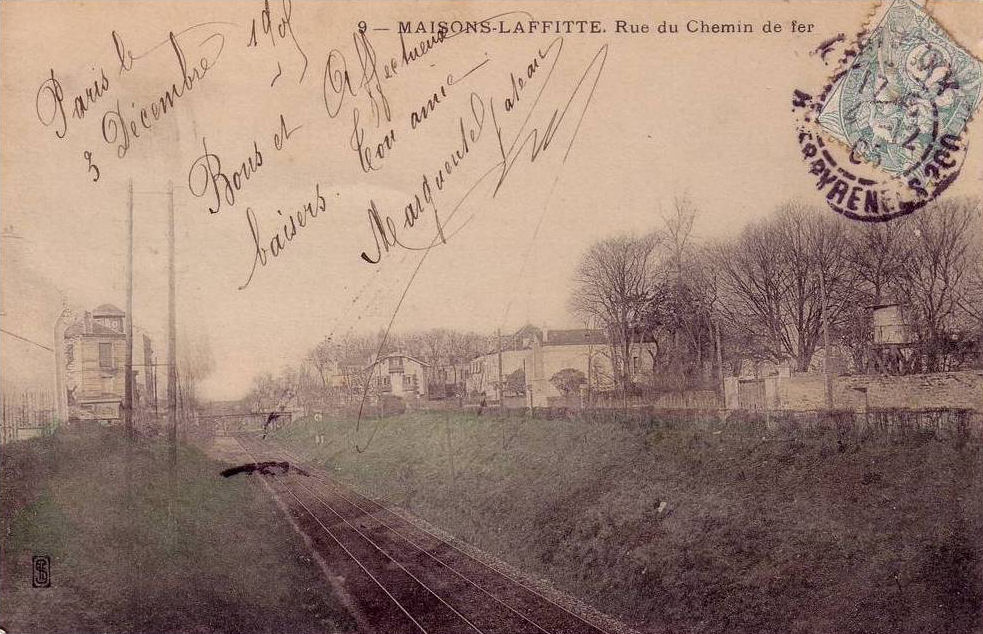 9 — MAISONS-LAFFITTE. Rue du Chemin de fer
Paris le
3 Décembre 1905
Bons et Affectueux
baisers. Ton amie
Marguerite
PYRENEES